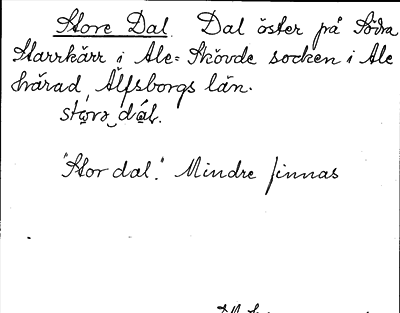 Store Dal. Dal öster på Södra
Starrkärr i Ale-Skövde socken i Ale
härad, Älfsborgs län.
"Stor dal." Mindre finnas